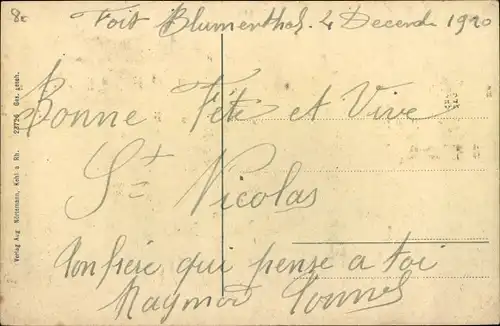 8e
Foit Blumenthal. 4 Decembre 1920
Bonne Fête et Vive
St Nicolas
Confrère qui pense a toi
Raymond
Verlag Aug. Nürnmann, Kehl a. Rh. 22726 Ges. gesch.